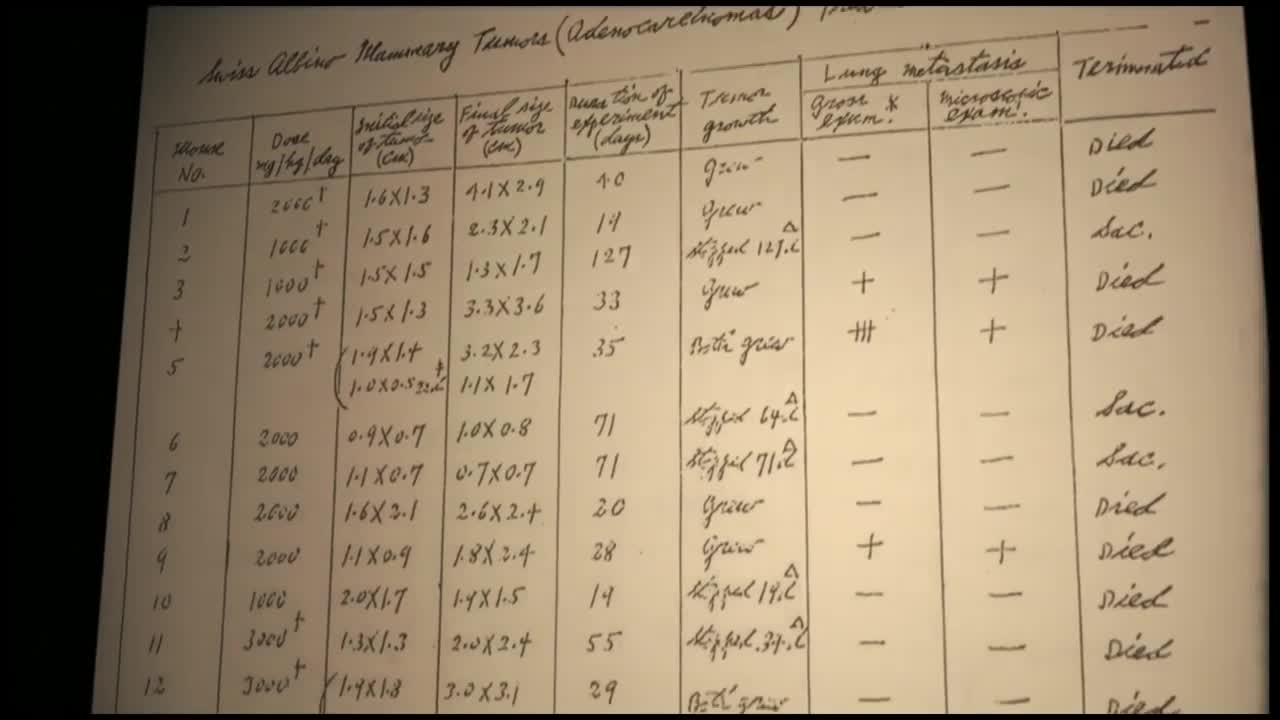 Swiss Albino Mammary Tumors (Adenocarcinomas)
Mouse No. Dose mg/kg/day Initial size of tumor (cm) Final size of tumor (cm) Duration of experiment (days) Tumor growth Lung metastasis gross exam.* microscopic exam. Terminated
1 2000† 1.6X1.3 4.1X2.9 40 Grew — — Died
2 1000† 1.5X1.6 2.3X2.1 19 Grew — — Died
3 1000† 1.5X1.5 1.3X1.7 127 Stopped 127 d Δ — — Sac.
4 2000† 1.5X1.3 3.3X3.6 33 Grew + + Died
5 2000† 1.9X1.4 3.2X2.3 35 Both grew + Died
1.0X0.5 1.1X1.7
6 2000 0.9X0.7 1.0X0.8 71 Stopped 64 d Δ — — Sac.
7 2000 1.1X0.7 0.7X0.7 71 Stopped 71 d Δ — — Sac.
8 2000 1.6X2.1 2.6X2.4 20 Grew — — Died
9 2000 1.1X0.9 1.8X2.4 28 Grew + + Died
10 1000 2.0X1.7 1.9X1.5 19 Stopped 19 d Δ — — Died
11 3000† 1.3X1.3 2.0X2.4 55 Stopped d Δ — — Died
12 3000† 1.9X1.8 3.0X3.1 29 Both grew — — Died